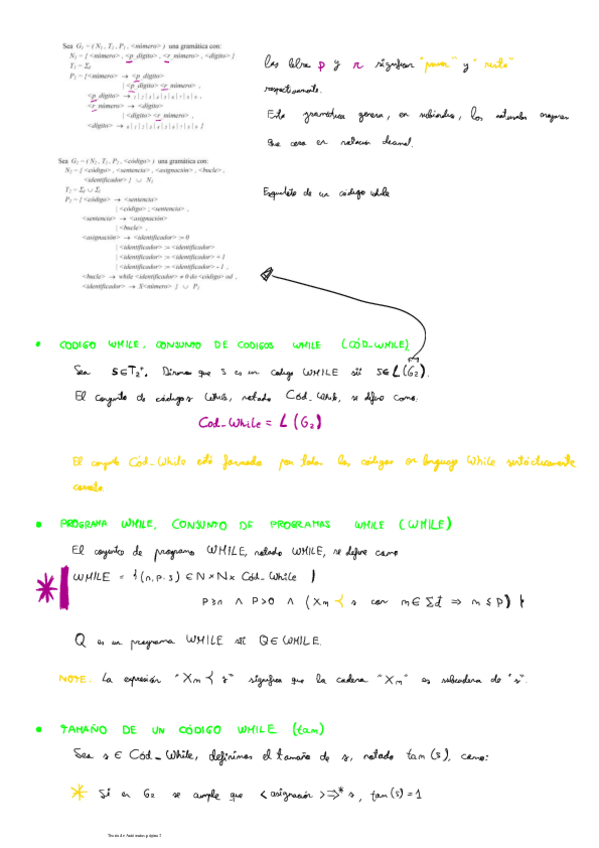 Sea G₁ = ( N₁ , T₁ , P₁ , <número> ) una gramática con:
N₁ = { <número> , <p_dígito> , <r_número> , <dígito> }
T₁ = Σd
P₁ = { <número> → <p_dígito>
| <p_dígito> <r_número> ,
<p_dígito> → 1 | 2 | 3 | 4 | 5 | 6 | 7 | 8 | 9 ,
<r_número> → <dígito>
| <dígito> <r_número> ,
<dígito> → 0 | 1 | 2 | 3 | 4 | 5 | 6 | 7 | 8 | 9 }
p y r significan "primer" y "resto"
respectivamente.
Esta gramática genera, en subíndice, los naturales
que cero en notación decimal.
Sea G₂ = ( N₂ , T₂ , P₂ , <código> ) una gramática con:
N₂ = { <código> , <sentencia> , <asignación> , <bucle> ,
<identificador> } ∪ N₁
P₂ = { <código> → <sentencia>
| <código> ; <sentencia> ,
<sentencia> → <asignación>
| <bucle> ,
<asignación> → <identificador> := 0
| <identificador> := <identificador>
| <identificador> := <identificador> + 1
| <identificador> := <identificador> - 1 ,
<bucle> → while <identificador> ≠ 0 do <código> od ,
<identificador> → X<número> } ∪ P₁
Esqueleto de un código while
• CODIGO WHILE, CONJUNTO DE CODIGOS WHILE (CÓD_WHILE)
Sea s∈T₂⁺. Diremos que s es un codigo WHILE sii s∈L(G₂).
El conjunto de códigos While, notado Cód_While, se define como:
Cod_While = L(G₂)
El conjunto Cód_While está formado por todos los códigos en lenguaje While sintácticamente
correctos
• PROGRAMA WHILE, CONJUNTO DE PROGRAMAS WHILE (WHILE)
El conjunto de programas WHILE, notado WHILE, se define como
WHILE = {(n, p, s) ∈ N×N× Cód_While |
p≥n ∧ p>0 ∧ (Xm ≺ s con m∈Σd⁺ ⇒ m≤p)}
Q es un programa WHILE sii Q∈WHILE.
NOTE. La expresión "Xm ≺ s" significa que la cadena "Xm" es subcadena de "s".
• TAMAÑO DE UN CÓDIGO WHILE (tam)
Sea s ∈ Cód_While, definimos el tamaño de s, notado tam(s), como:
* Si en G₂ se cumple que <asignación> ⇒* s, tam(s)=1